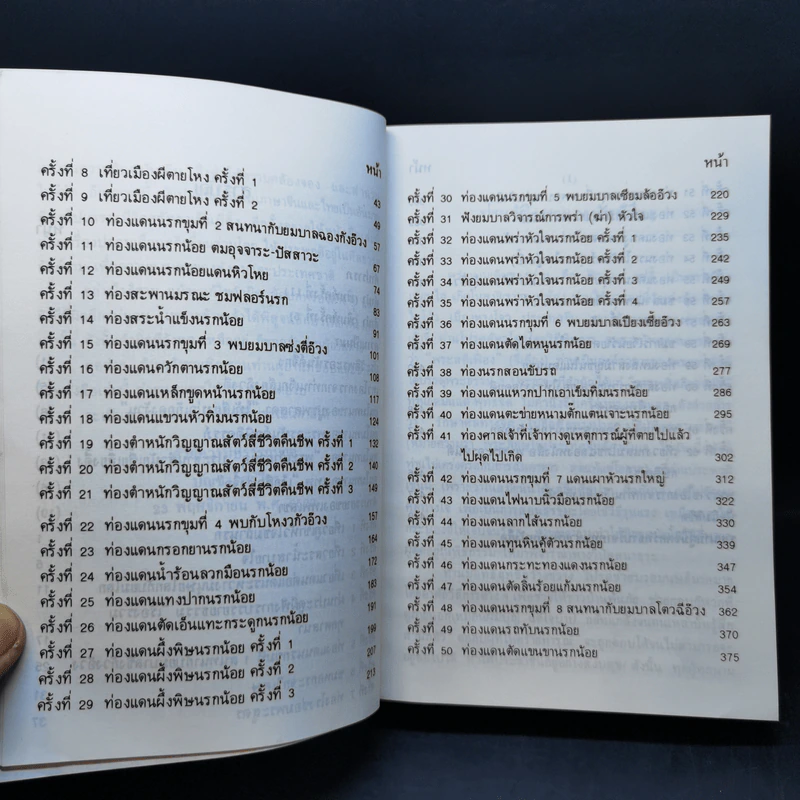 หน้า
ครั้งที่ 8 เที่ยวเมืองผีตายโหง ครั้งที่ 1 43
ครั้งที่ 9 เที่ยวเมืองผีตายโหง ครั้งที่ 2 49
ครั้งที่ 10 ท่องแดนนรกขุมที่ 2 สนทนากับยมบาลฉองกังอ๊วง 57
ครั้งที่ 11 ท่องแดนนรกน้อย ตมอุจจาระ-ปัสสาวะ 67
ครั้งที่ 12 ท่องแดนนรกน้อยแดนหิวโหย 74
ครั้งที่ 13 ท่องสะพานมรณะ ชมฟลอร์นรก 83
ครั้งที่ 14 ท่องสระน้ำแข็งนรกน้อย 91
ครั้งที่ 15 ท่องแดนนรกขุมที่ 3 พบยมบาลซ่งตี่อ๊วง 101
ครั้งที่ 16 ท่องแดนควักตานรกน้อย 108
ครั้งที่ 17 ท่องแดนเหล็กขูดหน้านรกน้อย 117
ครั้งที่ 18 ท่องแดนแขวนหัวทิ่มนรกน้อย 124
ครั้งที่ 19 ท่องตำหนักวิญญาณสัตว์สี่ชีวิตคืนชีพ ครั้งที่ 1 132
ครั้งที่ 20 ท่องตำหนักวิญญาณสัตว์สี่ชีวิตคืนชีพ ครั้งที่ 2 140
ครั้งที่ 21 ท่องตำหนักวิญญาณสัตว์สี่ชีวิตคืนชีพ ครั้งที่ 3 149
ครั้งที่ 22 ท่องแดนนรกขุมที่ 4 พบกับโหงวกัวอ๊วง 157
ครั้งที่ 23 ท่องแดนกรอกยานรกน้อย 164
ครั้งที่ 24 ท่องแดนน้ำร้อนลวกมือนรกน้อย 172
ครั้งที่ 25 ท่องแดนแทงปากนรกน้อย 183
ครั้งที่ 26 ท่องแดนตัดเอ็นแทะกระดูกนรกน้อย 191
ครั้งที่ 27 ท่องแดนผึ้งพิษนรกน้อย ครั้งที่ 1 199
ครั้งที่ 28 ท่องแดนผึ้งพิษนรกน้อย ครั้งที่ 2 207
ครั้งที่ 29 ท่องแดนผึ้งพิษนรกน้อย ครั้งที่ 3 213
หน้า
ครั้งที่ 30 ท่องแดนนรกขุมที่ 5 พบยมบาลเซียมล้ออ๊วง 220
ครั้งที่ 31 ฟังยมบาลวิจารณ์การพร่า (ฆ่า) หัวใจ 229
ครั้งที่ 32 ท่องแดนพร่าหัวใจนรกน้อย ครั้งที่ 1 235
ครั้งที่ 33 ท่องแดนพร่าหัวใจนรกน้อย ครั้งที่ 2 242
ครั้งที่ 34 ท่องแดนพร่าหัวใจนรกน้อย ครั้งที่ 3 249
ครั้งที่ 35 ท่องแดนพร่าหัวใจนรกน้อย ครั้งที่ 4 257
ครั้งที่ 36 ท่องแดนนรกขุมที่ 6 พบยมบาลเปียงเซี้ยอ๊วง 263
ครั้งที่ 37 ท่องแดนตัดไตหนูนรกน้อย 269
ครั้งที่ 38 ท่องนรกสอนขับรถ 277
ครั้งที่ 39 ท่องแดนแหวกปากเอาเข็มทิ่มนรกน้อย 286
ครั้งที่ 40 ท่องแดนตะข่ายหนามตั๊กแตนเจาะนรกน้อย 295
ครั้งที่ 41 ท่องศาลเจ้าที่เจ้าทางดูเหตุการณ์ผู้ที่ตายไปแล้ว
ไปผุดไปเกิด 302
ครั้งที่ 42 ท่องแดนนรกขุมที่ 7 แดนเผาหัวนรกใหญ่ 312
ครั้งที่ 43 ท่องแดนไฟนาบนิ้วมือนรกน้อย 322
ครั้งที่ 44 ท่องแดนลากไส้นรกน้อย 330
ครั้งที่ 45 ท่องแดนทูนหินคู้ตัวนรกน้อย 339
ครั้งที่ 46 ท่องแดนกระทะทองแดงนรกน้อย 347
ครั้งที่ 47 ท่องแดนตัดลิ้นร้อยแก้มนรกน้อย 354
ครั้งที่ 48 ท่องแดนนรกขุมที่ 8 สนทนากับยมบาลโตวฉีอ๊วง 362
ครั้งที่ 49 ท่องแดนรถทับนรกน้อย 370
ครั้งที่ 50 ท่องแดนตัดแขนขานรกน้อย 375